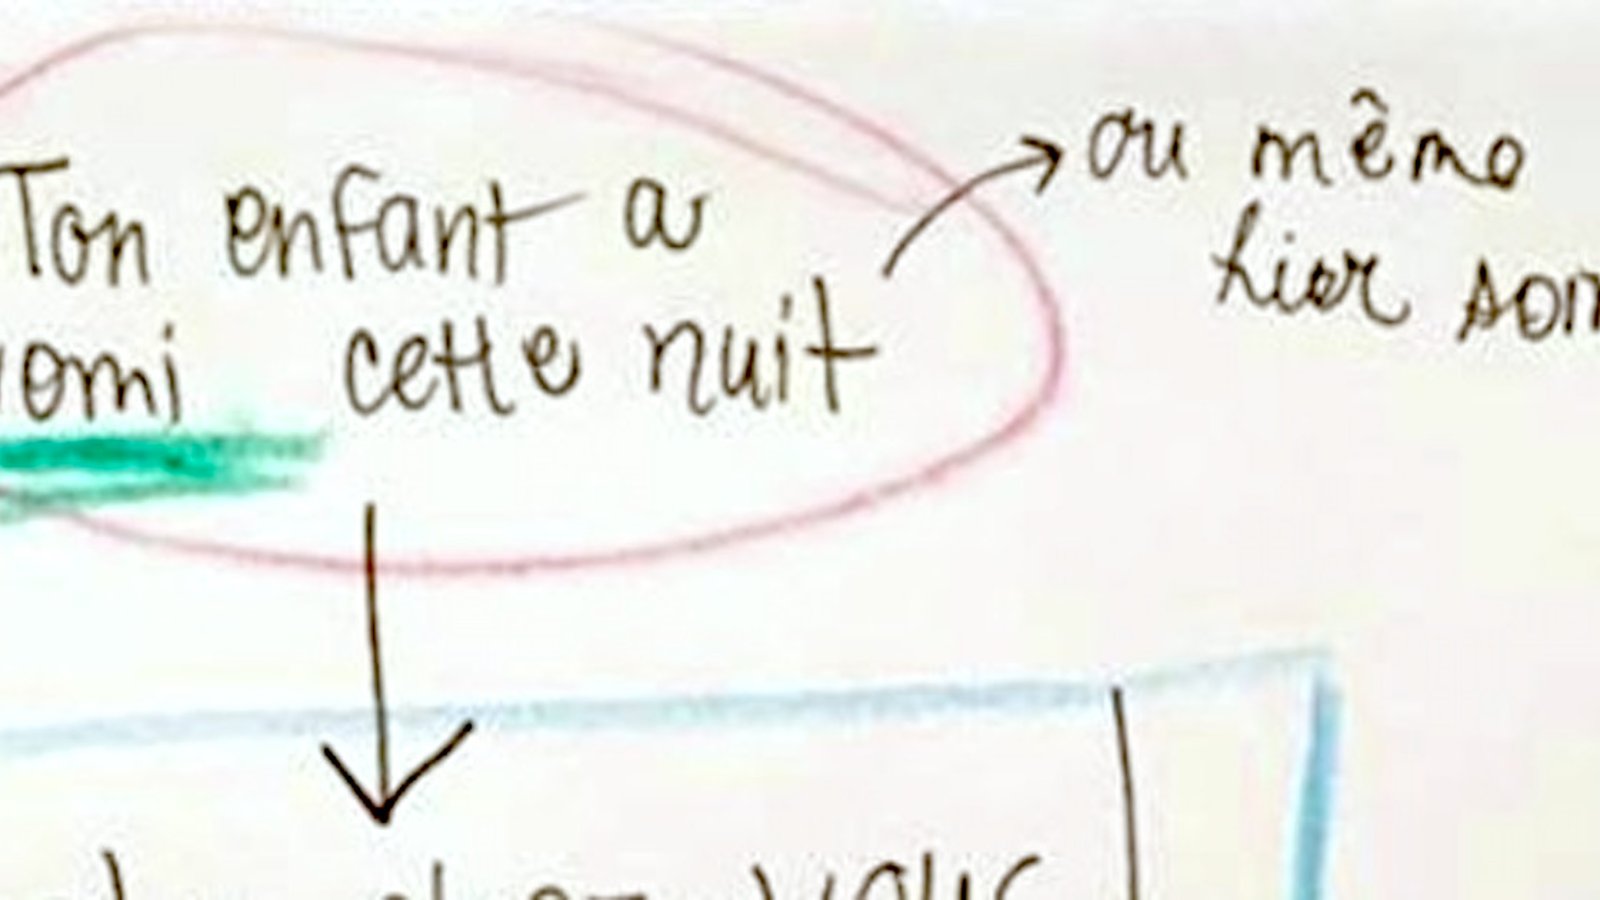 Ton enfant a
vomi cette nuit
ou même
hier soir
chez vous